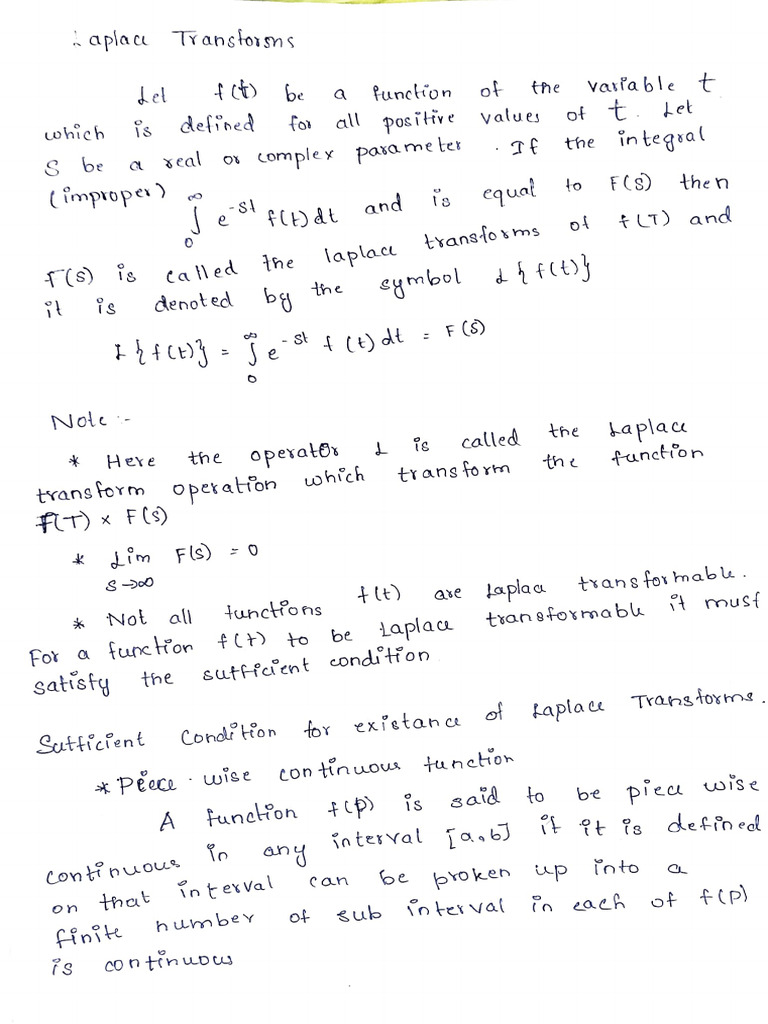 Laplace Transforms
Let f(t) be a function of the variable t
which is defined for all positive values of t. Let
S be a real or complex parameter. If the integral
(improper) ∫₀^∞ e^-st f(t) dt and is equal to F(S) then
F(S) is called the laplace transforms of f(T) and
it is denoted by the symbol L{f(t)}
L{f(t)} = ∫₀^∞ e^-st f(t) dt = F(S)
Note :-
* Here the operator L is called the Laplace
transform operation which transform the function
F(T) x F(S)
* Lim F(S) = 0
S→∞
* Not all functions f(t) are Laplace transformable.
For a function f(t) to be Laplace transformable it must
satisfy the sufficient condition
Sufficient Condition for existance of Laplace Transforms.
* Peece-wise continuous function
A function f(p) is said to be piece wise
continuous in any interval [a,b] if it is defined
on that interval can be broken up into a
finite number of sub interval in each of f(p)
is continuous